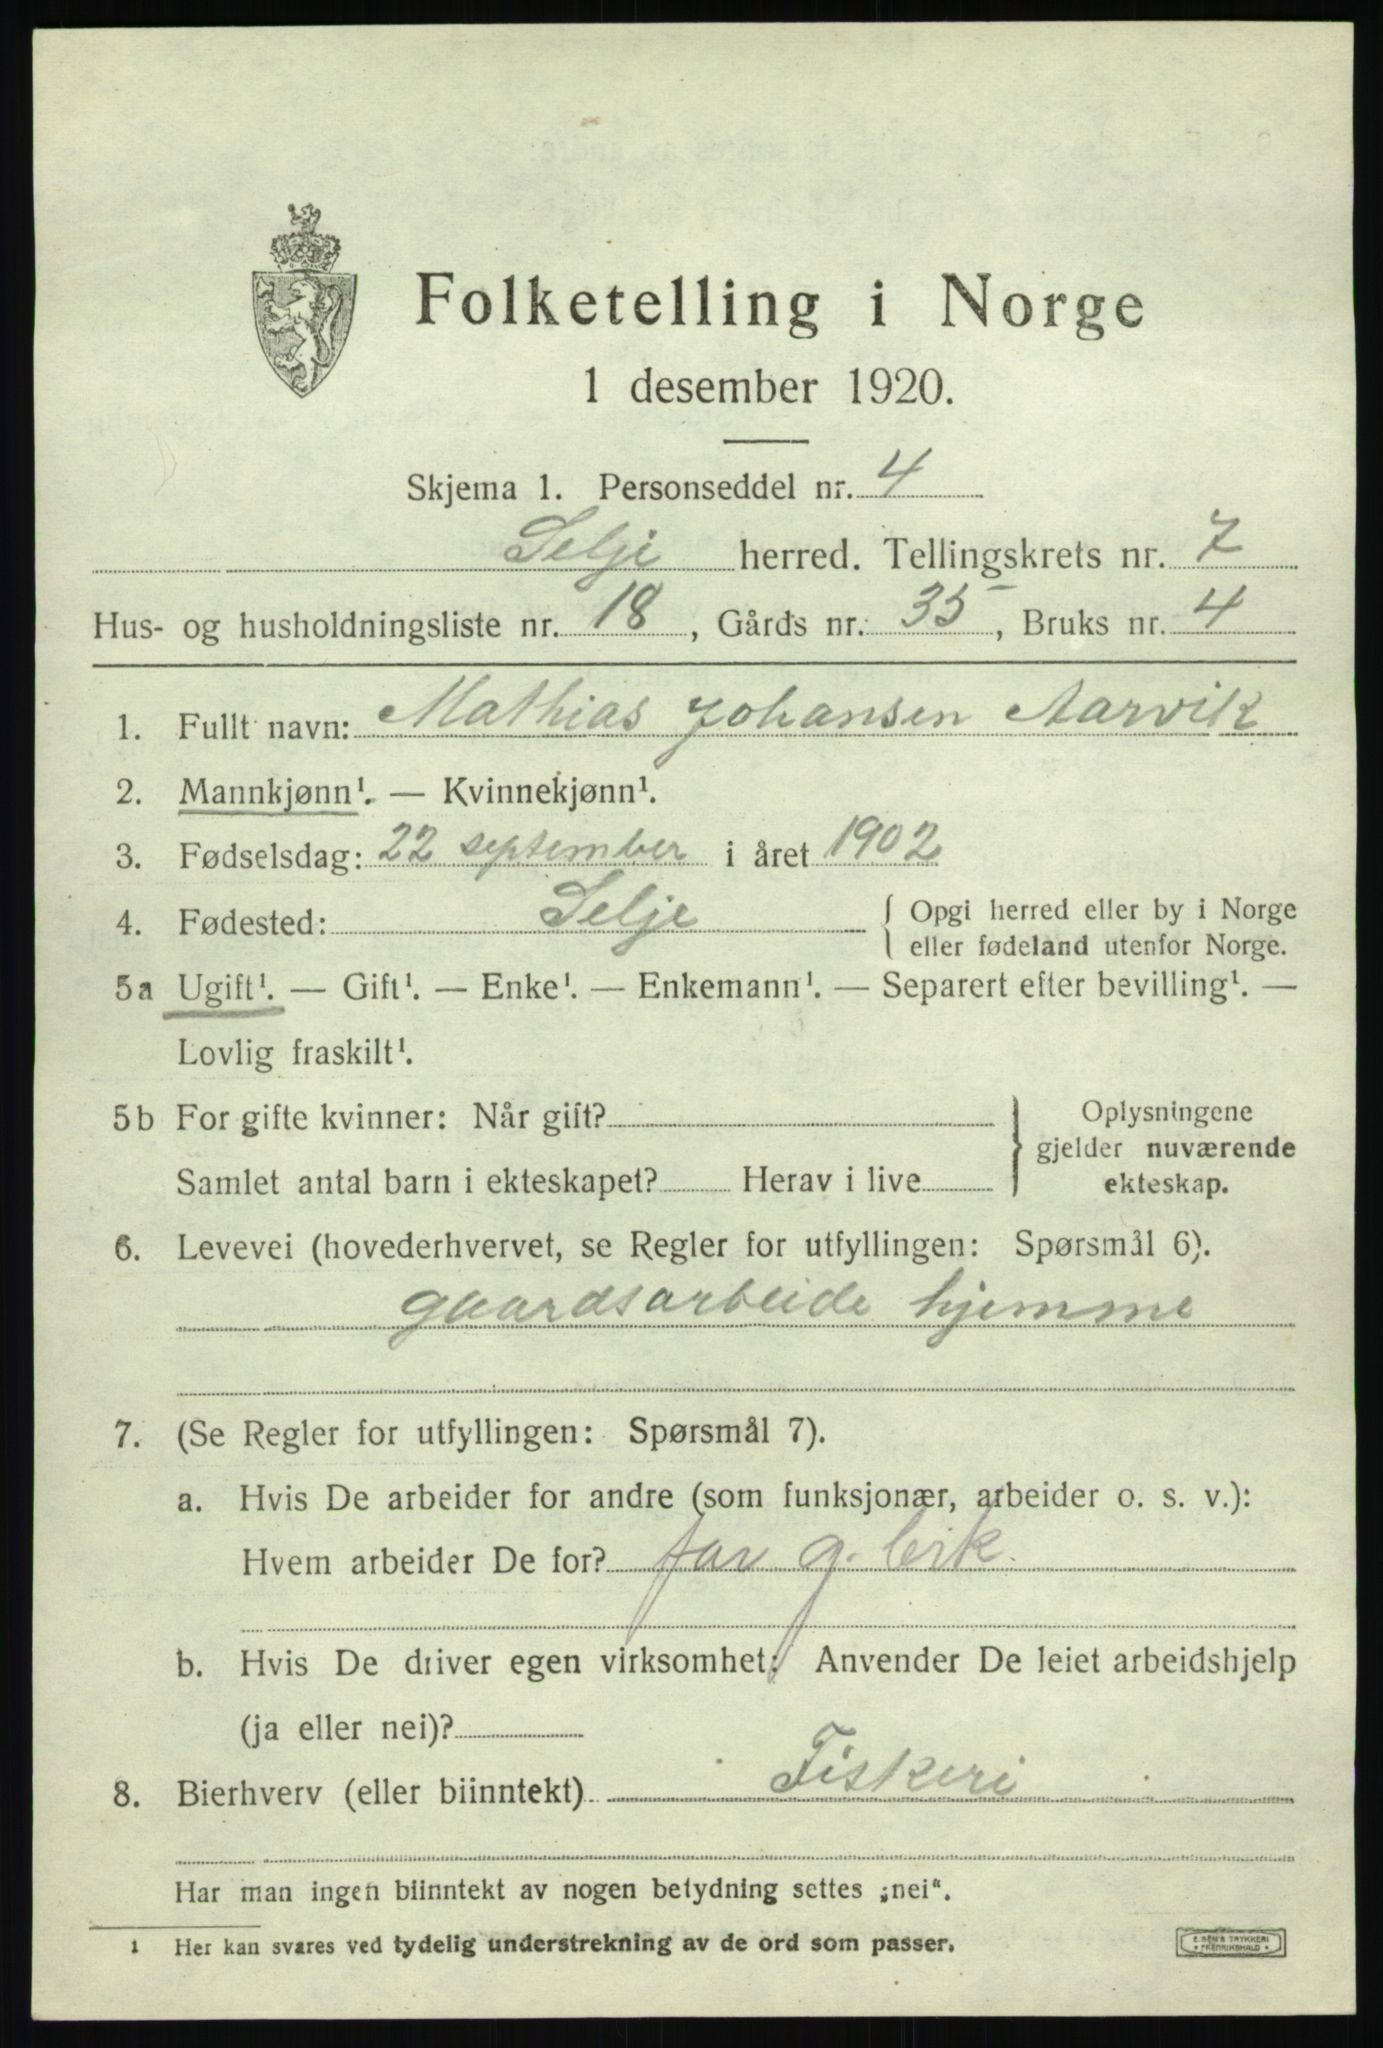 Folketelling i Norge
1 desember 1920.
Skjema 1. Personseddel nr. 4
Selje herred. Tellingskrets nr. 7
Hus- og husholdningsliste nr. 18, Gårds nr. 35, Bruks nr. 4
1. Fullt navn: Mathias Johansen Aarvik
2. Mannkjønn¹. — Kvinnekjønn¹.
3. Fødselsdag: 22 september i året 1902
4. Fødested: Selje { Opgi herred eller by i Norge
eller fødeland utenfor Norge.
5a Ugift¹. — Gift¹. — Enke¹. — Enkemann¹. — Separert efter bevilling¹. —
Lovlig fraskilt¹.
5b For gifte kvinner: Når gift? } Oplysningene
gjelder nuværende
Samlet antal barn i ekteskapet? Herav i live ekteskap.
6. Levevei (hovederhvervet, se Regler for utfyllingen: Spørsmål 6).
gaardsarbeide hjemme
7. (Se Regler for utfyllingen: Spørsmål 7).
a. Hvis De arbeider for andre (som funksjonær, arbeider o. s. v.):
Hvem arbeider De for? far g.
b. Hvis De driver egen virksomhet: Anvender De leiet arbeidshjelp
(ja eller nei)?
8. Bierhverv (eller biinntekt) Fiskeri
Har man ingen biinntekt av nogen betydning settes „nei“.
1 Her kan svares ved tydelig understrekning av de ord som passer.